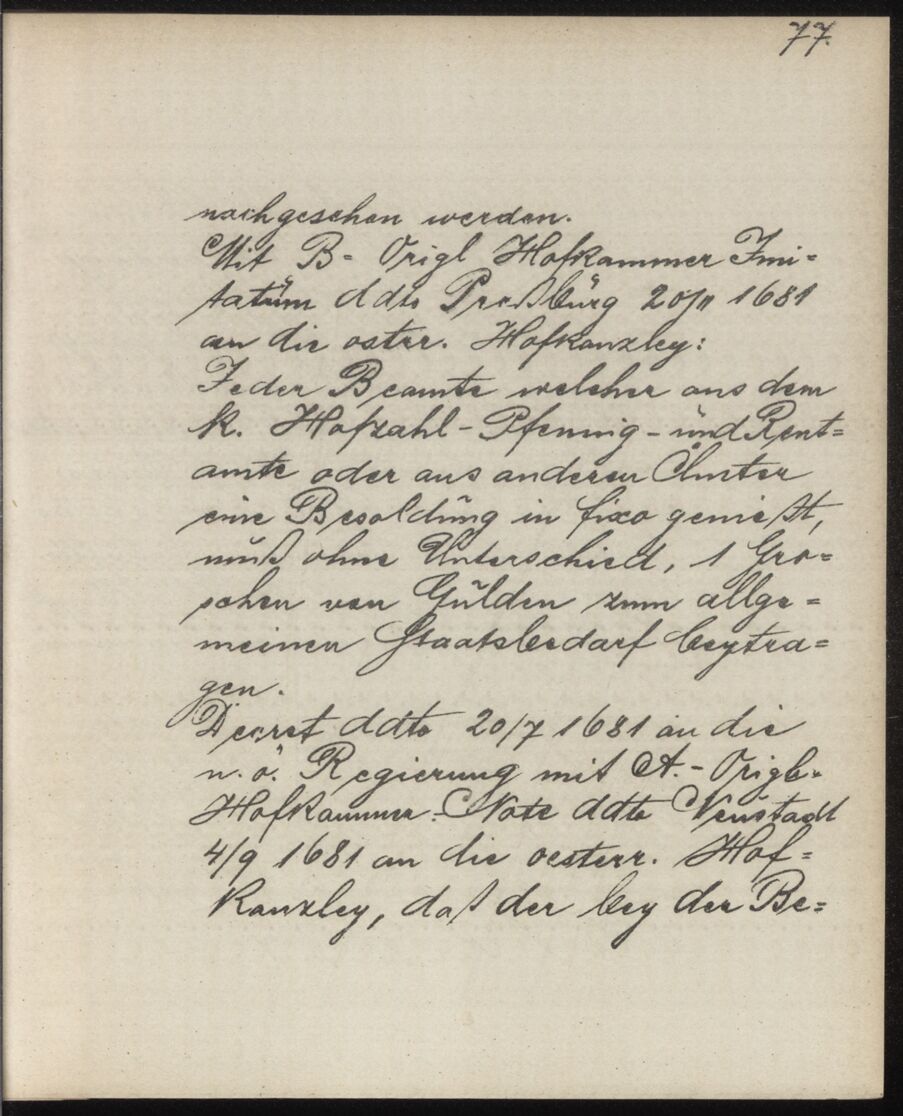 77.
nachgesehen werden.
Mit B- Origl Hofkammer Imi=
tatum ddto Preßburg 20/11 1681
an die ostrr. Hofkanzley:
Jeder Beamte welcher aus dem
k. Hofzahl-Pfennig-und Rent=
amte oder aus anderen Ämter
eine Besoldung in fixo genießt,
muß ohne Unterschied, 1 Gro=
schen von Gulden zum allge=
meinen Staatsbedarf beytra=
gen.
Decret ddto 20/7 1681 an die
n. ö. Regierung mit A.- Origl=
Hofkammer-Note ddto Neustadt
4/9 1681 an die oesterr. Hof=
Kanzley, daß der bey der Be=